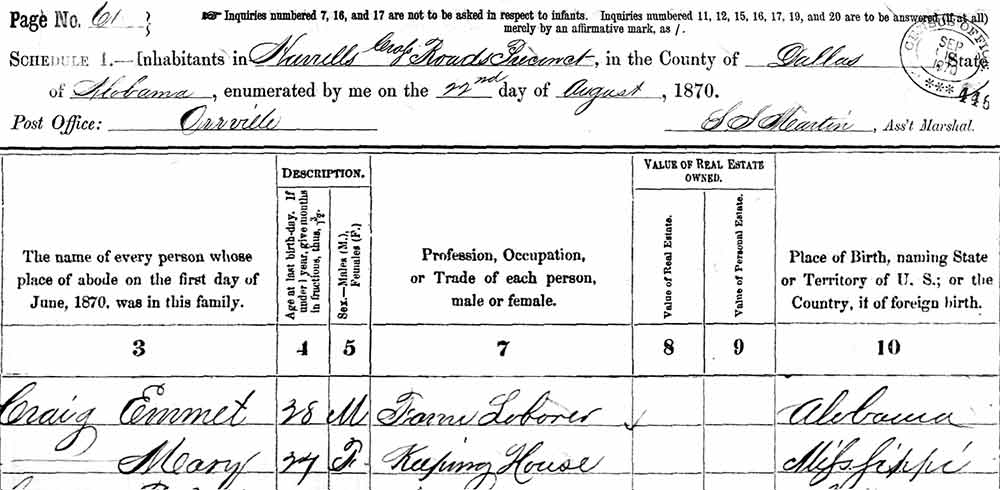 Page No. 61
☞ Inquiries numbered 7, 16, and 17 are not to be asked in respect to infants. Inquiries numbered 11, 12, 15, 16, 17, 19, and 20 are to be answered (if at all)
merely by an affirmative mark, as /.
SCHEDULE 1.—Inhabitants in Harrells Cross Roads Precinct, in the County of Dallas, State
of Alabama, enumerated by me on the 22nd day of August, 1870.
CENSUS OFFICE
SEP
1870
Post Office: Orrville
S S Martin, Ass't Marshal.
The name of every person whose
place of abode on the first day of
June, 1870, was in this family.
DESCRIPTION.
Age at last birth-day. If
under 1 year, give months
in fractions, thus, 3/12.
Sex.—Males (M.),
Females (F.)
Profession, Occupation,
or Trade of each person,
male or female.
VALUE OF REAL ESTATE
OWNED.
Value of Real Estate.
Value of Personal Estate.
Place of Birth, naming State
or Territory of U. S.; or the
Country, if of foreign birth.
3 4 5 7 8 9 10
Craig Emmet 28 M Farm Laborer Alabama
—— Mary 27 F Keeping House Mississippi